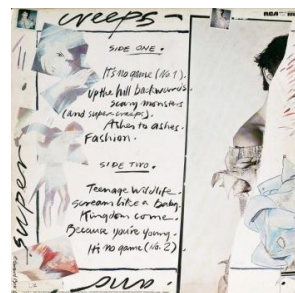 creeps -
RCA
SIDE ONE.
It's no game (No. 1).
up the hill backwards.
scary monsters
(and super creeps).
Ashes to ashes.
Fashion.
SIDE TWO.
Teenage Wildlife.
scream like a baby.
Kingdom come.
Because you're young.
It's no game (No. 2)
super
and